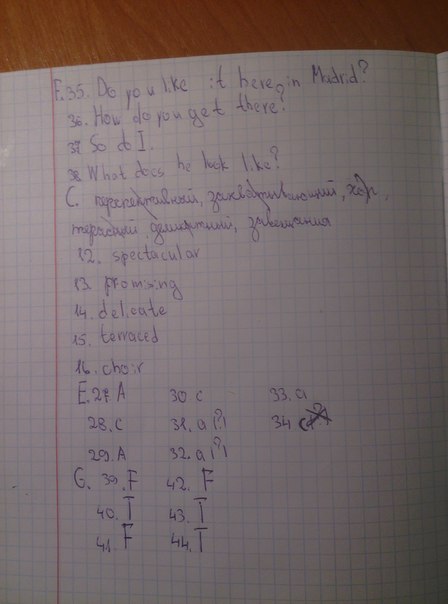 F. 35. Do you like it here in Madrid?
36. How do you get there?
37 So do I.
38 What does he look like?
C. перспективный, захватывающий, хор,
терасный, деликатный, завещания
12. spectacular
13. promising
14. delicate
15. terraced
16. choir
E. 27. A 30 c 33. a
28. c 31. a (?) 34 c
29. A 32. a (?)
G. 39. F 42. F
40. T 43. T
41. F 44. T